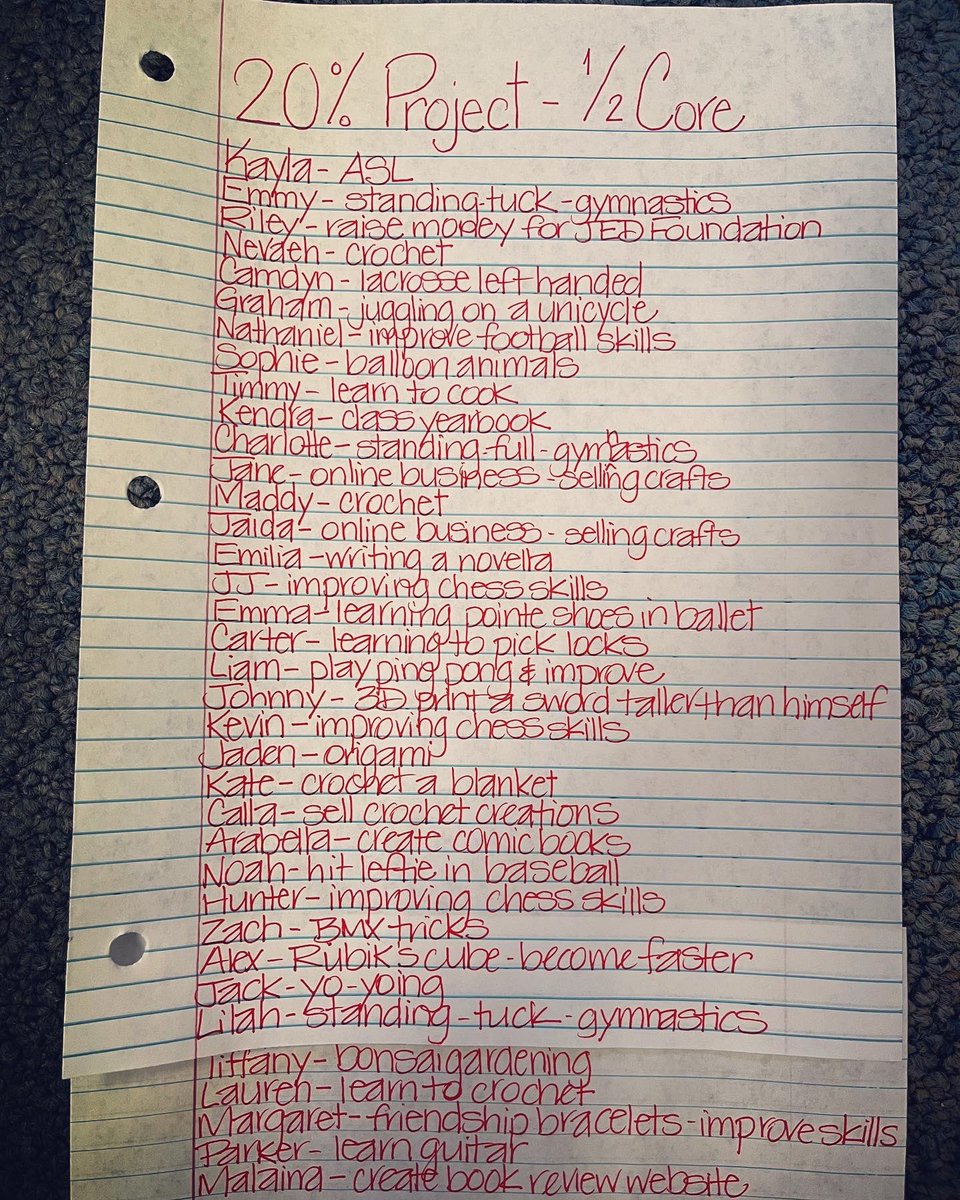 20% Project - 1/2 Core
Kayla - ASL
Emmy - standing-tuck-gymnastics
Riley - raise money for JED Foundation
Nevaeh - crochet
Camdyn - lacrosse left handed
Graham - juggling on a unicycle
Nathaniel - improve football skills
Sophie - balloon animals
Timmy - learn to cook
Kendra - class yearbook
Charlotte - standing-full-gymnastics
Jane - online business - selling crafts
Maddy - crochet
Jaida - online business - selling crafts
Emilia - writing a novella
JJ - improving chess skills
Emma - learning pointe shoes in ballet
Carter - learning to pick locks
Liam - play ping pong & improve
Johnny - 3D print a sword taller than himself
Kevin - improving chess skills
Jaden - origami
Kate - crochet a blanket
Calla - sell crochet creations
Arabella - create comic books
Noah - hit leftie in baseball
Hunter - improving chess skills
Zach - BMX tricks
Alex - Rubik's cube - become faster
Jack - yo-yoing
Lilah - standing-tuck-gymnastics
Tiffany - bonsai gardening
Lauren - learn to crochet
Margaret - friendship bracelets - improve skills
Parker - learn guitar
Malaina - create book review website